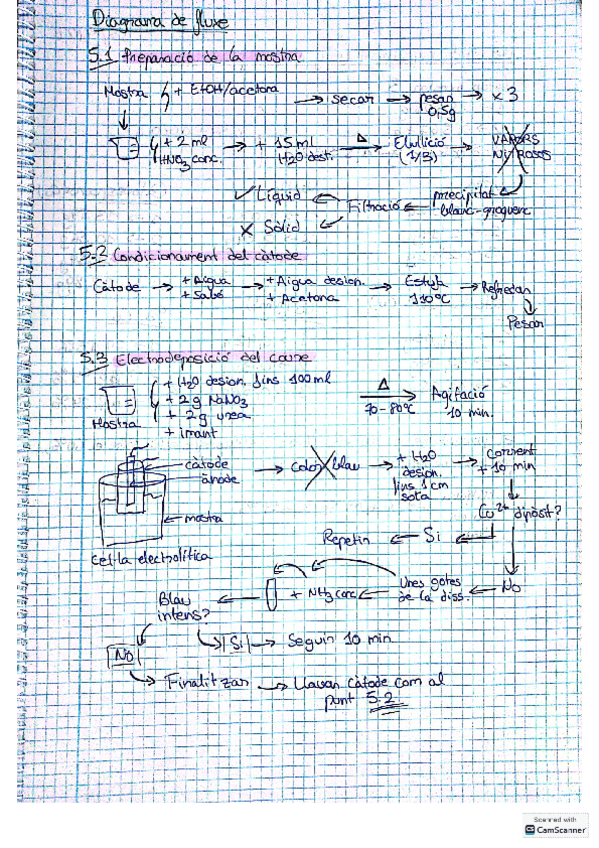 Diagrama de fluxe
5.1 Preparació de la mostra
Mostra + EtOH/acetona → secar → pesar 0,5g → x3
+ 2 ml HNO3 conc. → + 15 ml H2O dest. Δ → Ebullició (1/3) → VAPORS NITROSOS
✓ Líquid ← Filtració ← precipitat blanc-groguenc
X Sòlid
5.2 Condicionament del càtode
Càtode → + Aigua + Sabó → + Aigua desion. + Acetona → Estufa 110ºC → Refredar
Pesar
5.3 Electrodeposició del coure
+ H2O desion. fins 100 ml
+ 2 g NaNO3
+ 2 g urea
+ imant
Mostra
Δ 70-80ºC → Agitació 10 min.
càtode → Color blau → + H2O desion. fins 1 cm sota → Corrent + 10 min
ànode
mostra
cel·la electrolítica
Cu2+ dipòsit?
Repetir ← Si
No
Unes gotes de la diss. + NH3 conc
Blau intens?
Si → Seguir 10 min
No
Finalitzar → Llavar càtode com al punt 5.2
Scanned with
CS CamScanner